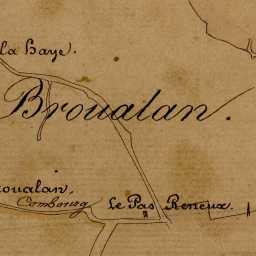 la Haye.
Broualan.
roualan,
Combourg
Le Pas Reneux.